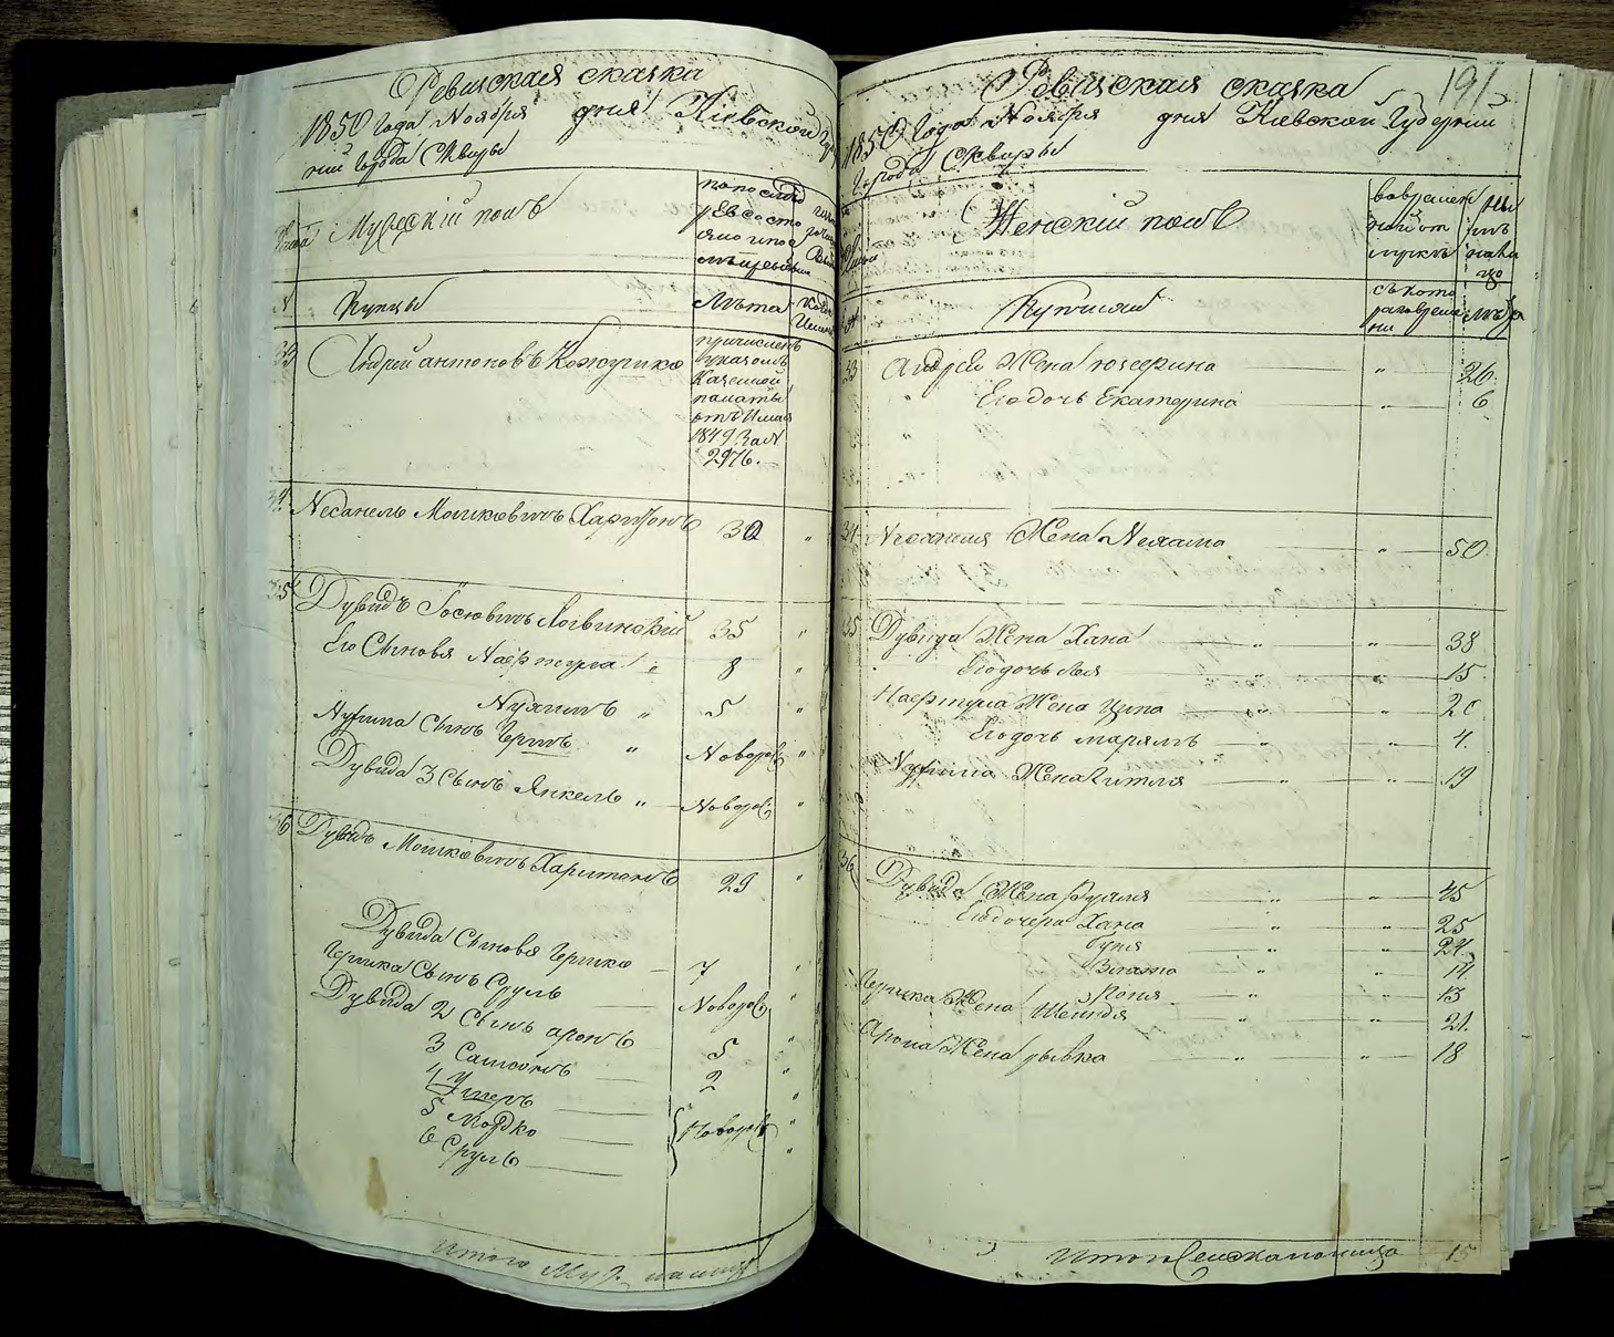 Ревизская сказка
1850 года Ноября дня Кіевской
нии города Сквиры
Мужескій полъ
по послед
ревсосто
яло и после
Купцы
Лѣта
33 Андрей Антоновъ Кожушко
причисленъ
указомъ
Казенной
палаты
отъ 11 мая
1849 за №
2976.
34 Несанель Мошковичъ Харитонъ 30 "
35 Дувидъ Іосіовичъ Логвинскій 35 "
Его Сыновя Нафтула " 8 "
Нухимъ " 5 "
Нухима Сынъ Гершъ " Новорож "
Дувида 3 Сынъ Янкель " Новорож "
36 Дувидъ Мошковичъ Харитонъ 29 "
Дувида Сыновя Гершко 7 "
Гершка Сынъ Сруль Новорож "
Дувида 2 Сынъ Аронъ 5 "
3 Самсонъ 2 "
4 Ушеръ "
5 Мордко Новорож "
6 Сруль "
Итого Муж. налицо
191
Ревизская сказка
1850 Года Ноября дня Кіевской Губерніи
Города Сквиры
Женскій полъ
во времен
ной от
лучкѣ
Ны
нѣ
на ли
цо
съ кото
раго време
ни
лѣта
33 Андрея Жена " 26.
Его дочь Екатерина " 6
34 Несанеля Жена Нехама " 50.
35 Дувида Жена Хана " " 38
Его дочь Лея " " 15.
Нафтула Жена Ципа " " 20
Его дочь Марямъ " " 4.
Нухима Жена Гитля " " 19
36 Дувида Жена Рухля " " 45
Его дочера Хана " " 25
Гуня " " 24.
Злата " " 14.
" " 13
Гершка Жена Шейндя " " 21.
Арона Жена Рывка " " 18
Итого Женска полица 15